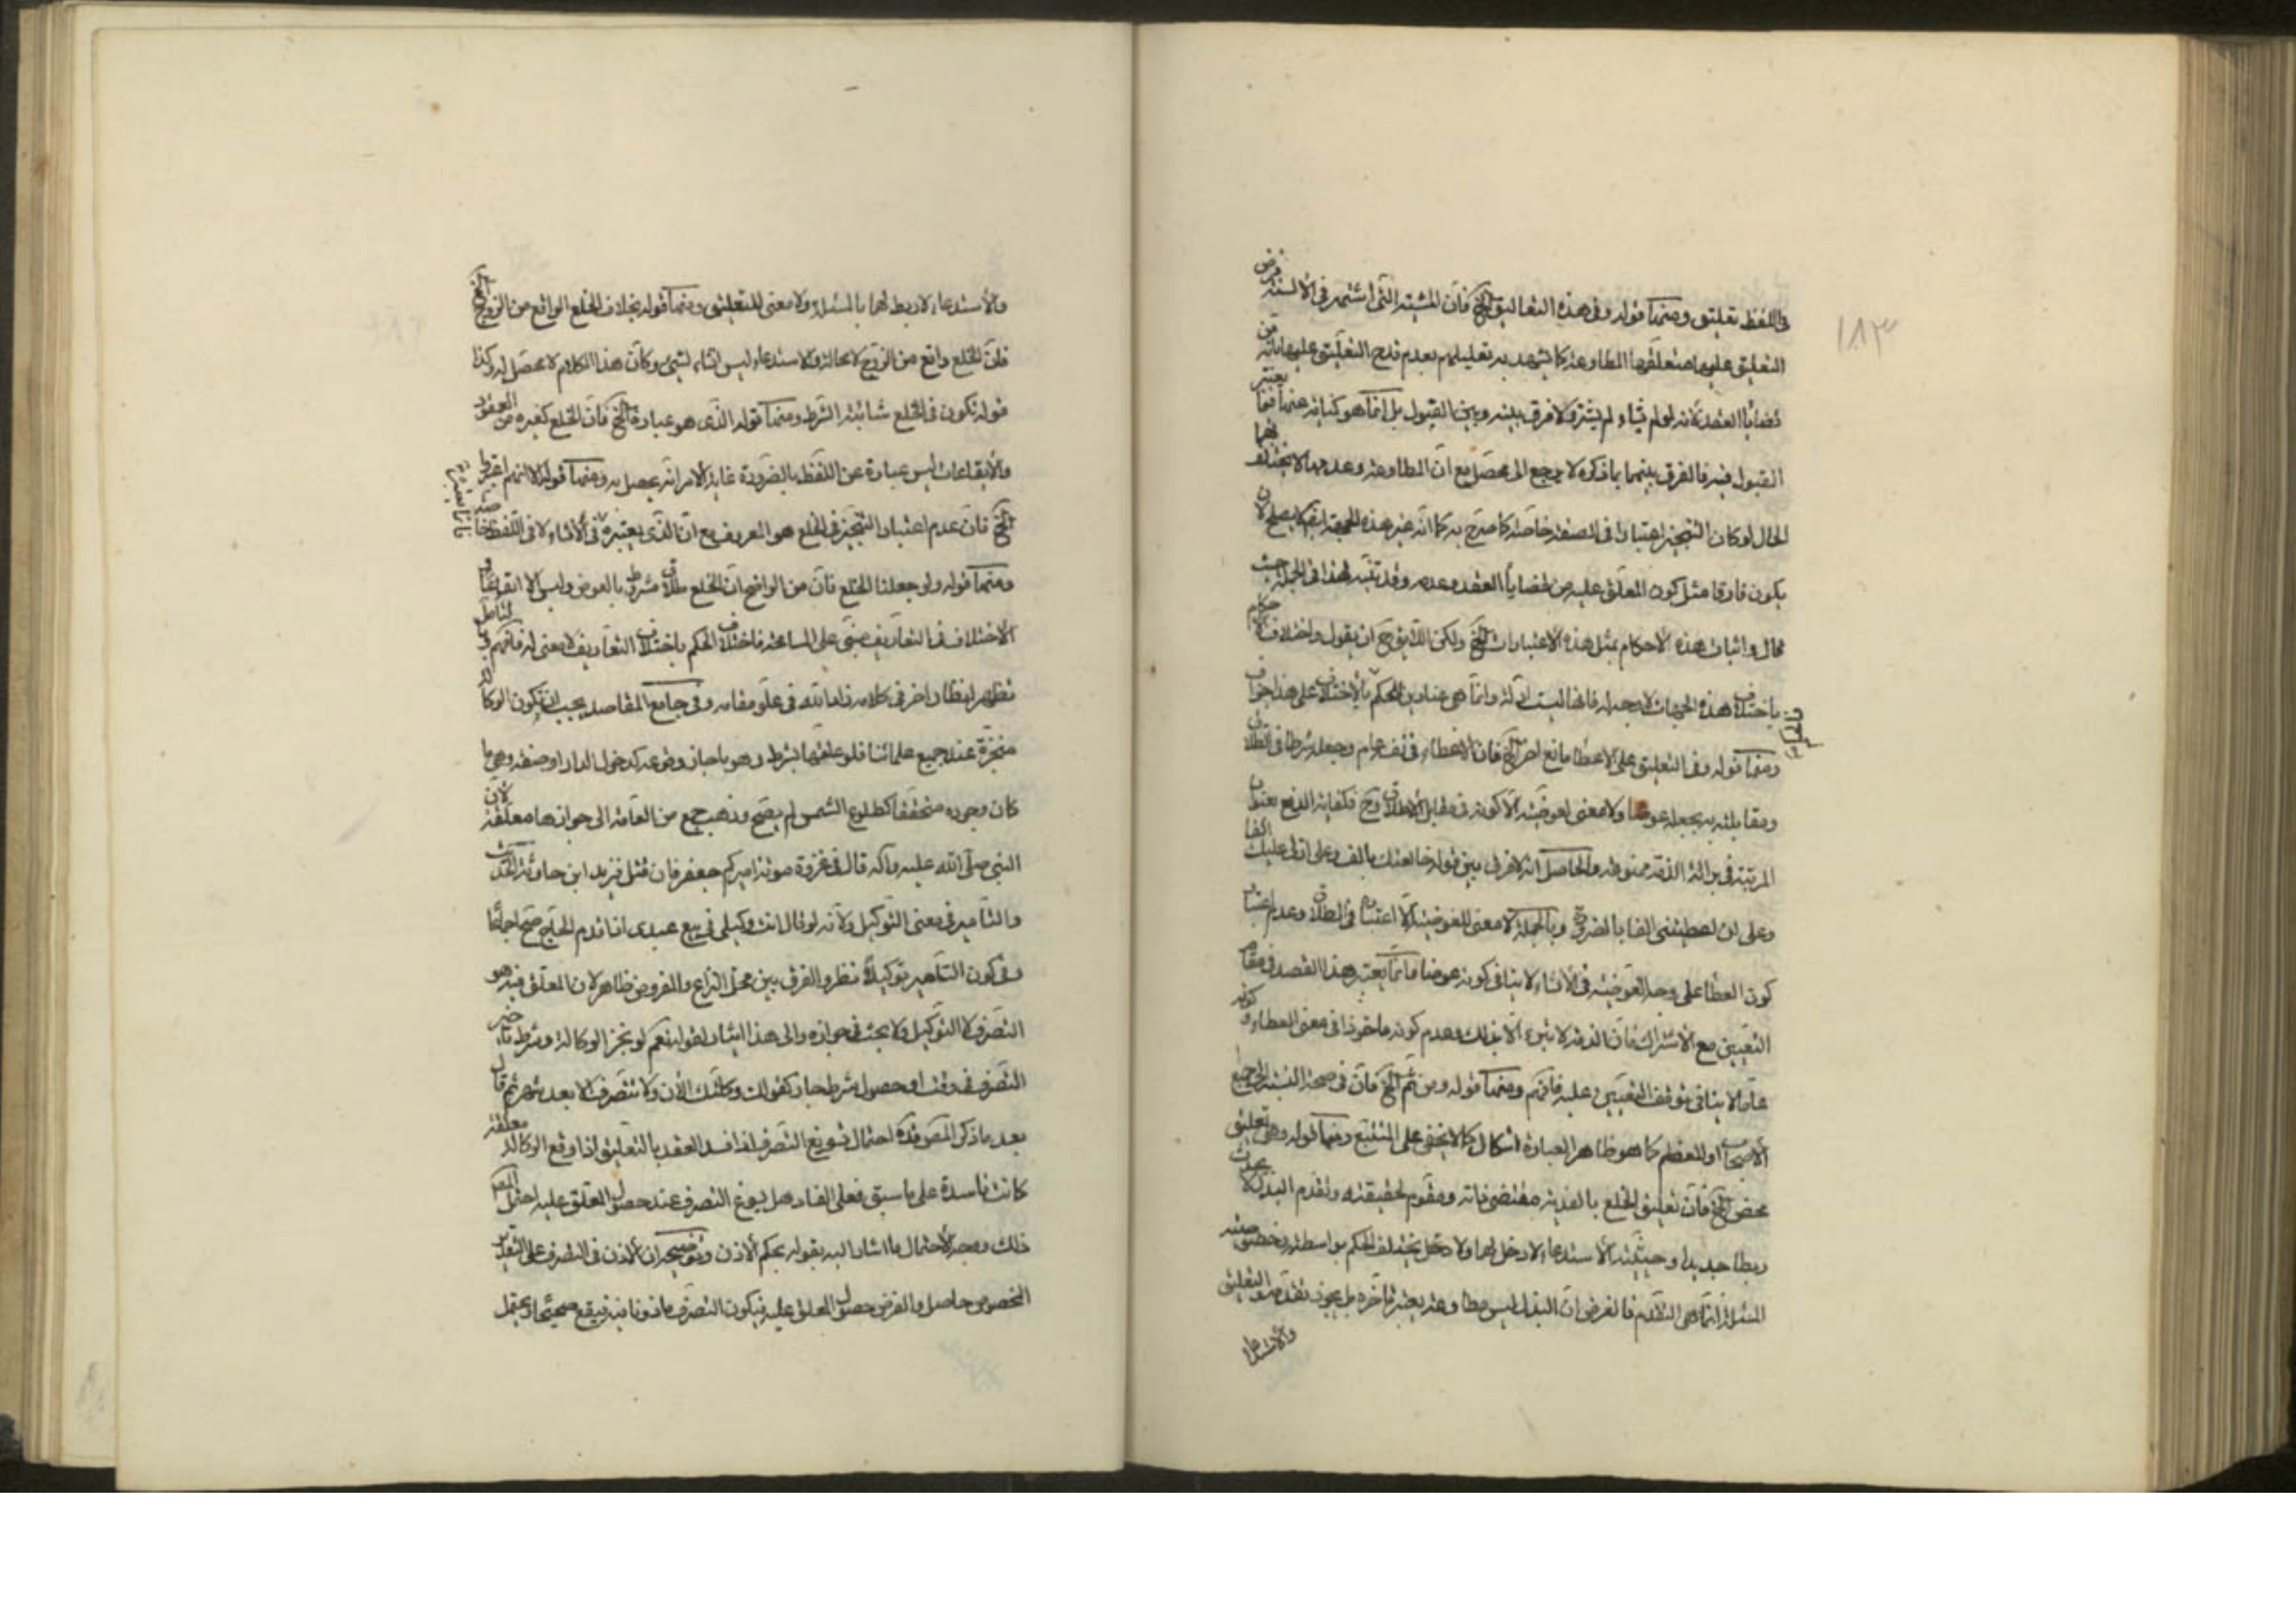 ١٨٣
في اللفظ تعليق ومنها قوله وفي هذه التعاليق الخ فان المشية التي اشتهر في الألسنة فرض
التعليق عليها متعلقها المطاوعة كما يشهد به تعليلهم بعدم قدح التعليق عليها بانه من
قضايا العقد لانه لو لم يشاء لم يشتر ولا فرق بينه وبين القبول بل انما هو كناية عنه يعتبر
القبول فيه فالفرق بينهما بما ذكره لا يرجع الى محصل مع ان المطاوعة وعدمها لا يختلف فيهما
الحال لو كان التنجيز اعتبارا في الصيغة خاصة كما صرح به كما انه غير هذه الجهة ايضا لا يصلح لان
يكون فارقا مثل كون المعلق عليه من قضايا العقد وعدمه وقد تنبه لهذا في الجملة حيث
قال واثبات هذه الأحكام بمثل هذه الاعتبارات الخ ولكن اللايق ح ان يقول واختلاف الاحكام
باختلاف هذه الجهات لا وجه له فانها ليست ادلة وانما هي عناوين للحكم بالاختلاف على هذا
ومنها قوله وفي التعليق على الاعطا مانع اخر الخ فان الاعطاء في نفسه عام وجعله شرطا في الطلاق
ومقابلته به يجعله عوضا ولا معنى لعوضيته الا كونه في مقابل الطلاق وح فكفاية الدفع بعنوان
المرتبة في برائة الذمة ممنوعة والحاصل انه لا فرق بين قوله خالعتك بالف وعلى ان لي عليك الفا
وعلى ان تعطيني الفا بالضرورة وبالجملة لا معنى للعوضية الا اعتباره في الطلاق وعدم اعتبار
كون العطا على وجه العوضية في الانشاء لا ينافي كونه عوضا فانما يعتبر هذا القصد في مقام
التعيين مع الاشتراك فان الذمة لا تبرء الا بذلك وعدم كونه ماخوذا في معنى العطاء و كونه
عاما لا ينافي توقف التعيين عليه فافهم ومنها قوله ومن ثم الخ فان في صحة النسبة الى جميع
الاصحاب او المعظم كما هو ظاهر العبارة اشكال كما لا يخفى على المتتبع ومنها قوله وهي تعليق
محض الخ فان تعليق الخلع بالفدية مقتضى ذاته ومقوم لحقيقته وتقدم البذل لا يحدث
ربطا جديدا وحيثية الاستدعاء لا دخل لها ولا دخل يختلف الحكم بواسطته
المسئلة انما هي التقديم فالفرض ان البذل ليس مطاوعة يعتبر تاخره بل يجوز تقدمه والتعليق
والاستدعا
والاستدعاء لا ربط لهما بالمسئلة ولا معنى للتعليق ومنها قوله بخلاف الخلع الواقع من الزوج الخ
فان الخلع واقع من الزوج لا محالة والاستدعاء ليس انشاء لشيء وكان هذا الكلام لا محصل له وكذا
قوله تكون في الخلع شائبة الشرط ومنها قوله الذي هو عبارة الخ فان الخلع كغيره من العقود
والايقاعات ليس عبارة عن اللفظ بالضرورة غاية الامر انه يحصل به ومنها قوله الا انهم
الخ فان عدم اعتبار التنجيز في الخلع هو المعروف مع ان الذي يعتبره في الانشاء لا في اللفظ خاصة
ومنها قوله ولو جعلنا الخلع فان من الواضح ان الخلع طلاق مشروط بالعوض وليس الا ايقاعا و
الاختلاف في التعاريف مبني على المسامحة فاختلاف الحكم باختلاف التعاريف لا معنى له فافهم
تظهر انظار اخر في كلامه زاد الله في علو مقامه وفي جامع المقاصد يجب ان تكون الوكالة
منجزة عند جميع علمائنا فلو علقها بشرط وهو ما جاز وقوعه كدخول الدار او صفة وهي ما
كان وجوده متحققا كطلوع الشمس لم يصح وذهب جمع من العامة الى جوازها معلقة لان
النبي صلى الله عليه وآله قال في غزوة موتة اميركم جعفر فان قتل فزيد ابن حارثة الحديث
والتامير في معنى التوكيل ولانه لو قال انت وكيلي في بيع عبدي اذا قدم الحاج صح اجماعا
وفي كون التامير توكيلا نظر والفرق بين محل النزاع والمفروض ظاهر لان المعلق فيه هو
التصرف لا التوكيل ولا بحث في جوازه والى هذا اشار بقوله نعم لو نجز الوكالة وشرط تاخير
التصرف في وقت او حصول شرط جاز كقولك وكلتك الان ولا تتصرف الا بعد شهر ثم قال
بعد ما ذكر المصنف قده احتمال تسويغ التصرف اذا فسد العقد بالتعليق اذا وقع الوكالة معلقة
كانت فاسدة على ما سبق فعلى الفساد هل يسوغ التصرف عند حصول المعلق عليه احتمل المص
ذلك ووجه الاحتمال ما اشار اليه بقوله بحكم الاذن وتوضيحه ان الاذن في التصرف على التقدير
المخصوص حاصل والفرض حصول المعلق عليه فيكون التصرف ماذونا فيه فيقع صحيحا ويحتمل